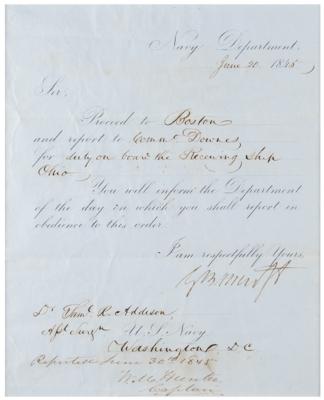 Navy Department.
June 20, 1845
Sir,
Proceed to Boston
and report to Commre. Downes,
for duty on board the Receiving Ship
Ohio.
You will inform the Department
of the day on which you shall report in
obedience to this order.
I am respectfully Yours,
G. Bancroft
Dr. Thos. R. Addison,
U. S. Navy
Washington D C
Reported June 30th 1845
Captain